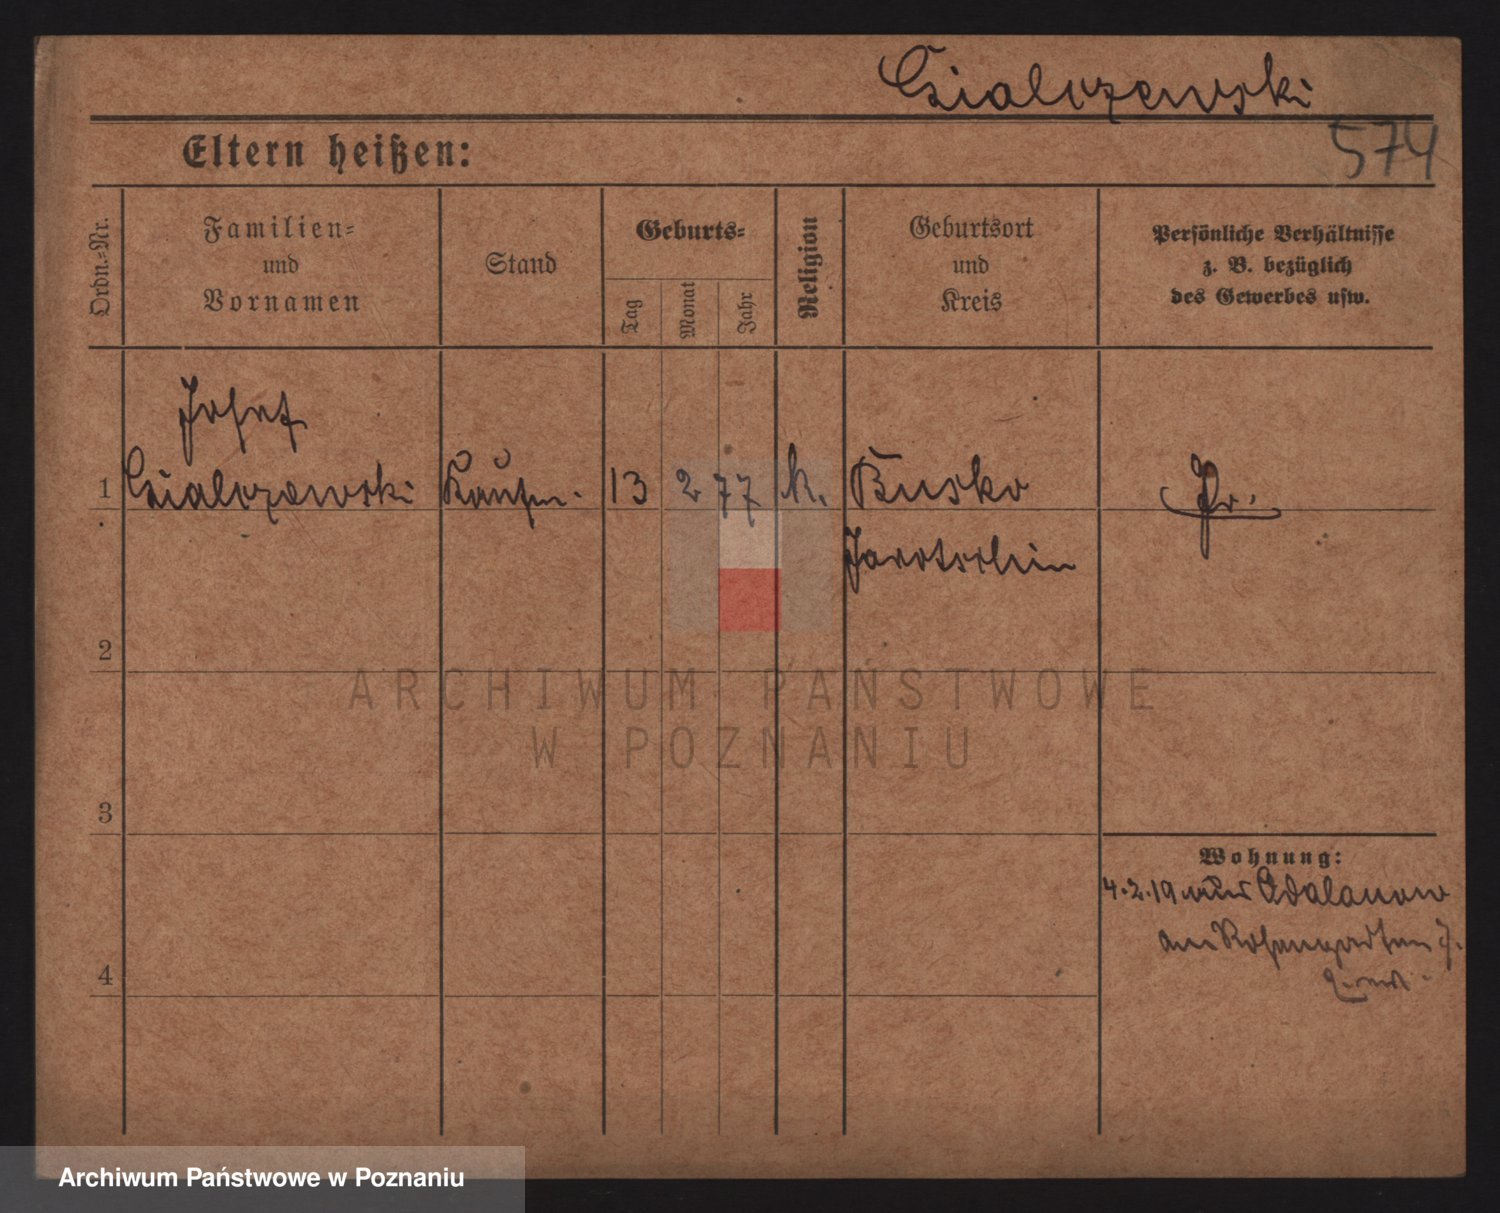 Czialczewski
574
Eltern heißen:
Ordn.-Nr.
Familien-
und
Vornamen
Stand
Geburts-
Tag
Monat
Jahr
Religion
Geburtsort
und
Kreis
Persönliche Verhältnisse
z. B. bezüglich
des Gewerbes usw.
Josef
1 Czialczewski Kaufm. 13 2 77 k. Busko Pr.
Jarotschin
2
ARCHIWUM PAŃSTWOWE
W POZNANIU
3
Wohnung:
4.2.19 Adalanow
4
Archiwum Państwowe w Poznaniu